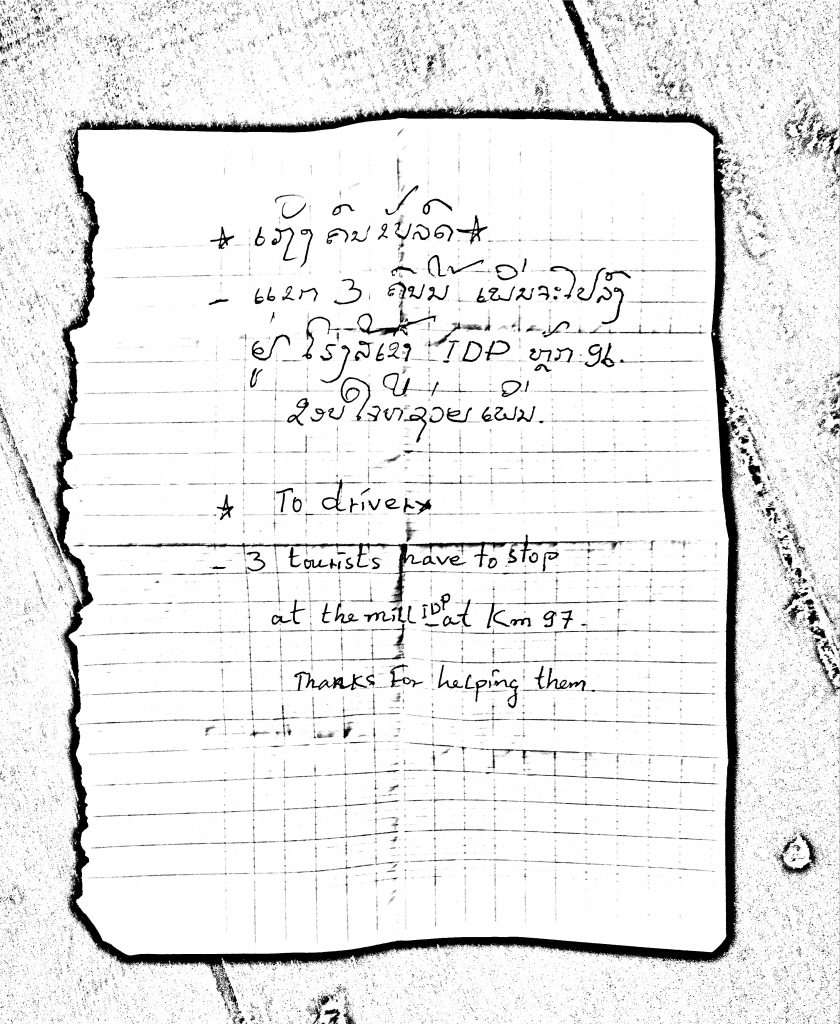 ★ ເຖິງ ຄົນຂັບລົດ ★
- ແຂກ 3 ຄົນນີ້ ເພິ່ນຈະໄປລົງ
ຢູ່ ໂຮງສີເຂົ້າ IDP ຫຼັກ 97.
ຂອບໃຈທີ່ຊ່ວຍ ເພິ່ນ.
★ To driver ★
- 3 tourists have to stop
at the mill IDP at Km 97.
Thanks For helping them.